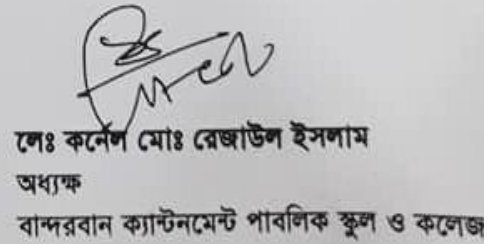 লেঃ কর্নেল মোঃ রেজাউল ইসলাম
অধ্যক্ষ
বান্দরবান ক্যান্টনমেন্ট পাবলিক স্কুল ও কলেজ